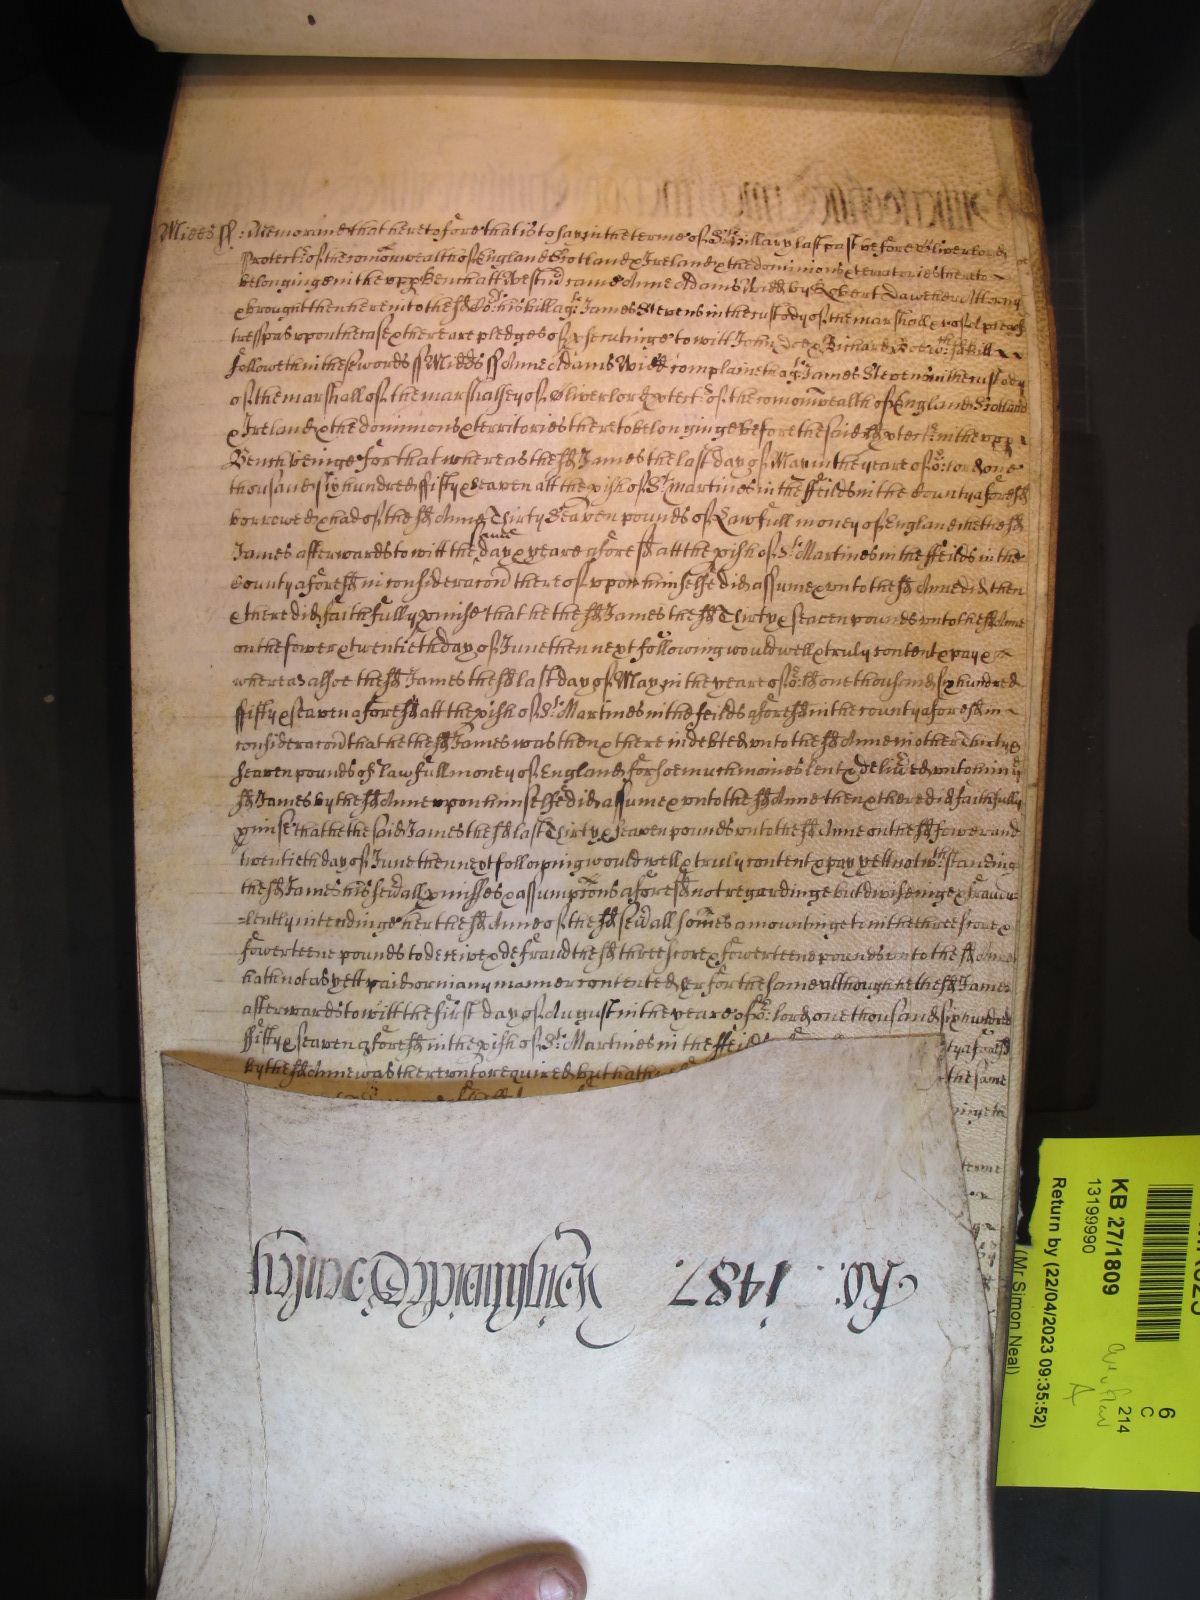 Midds ss: Memorand that heretofore that is to say in the terme of St Hillary last past before Oliver lord
Protectr of the comonwealth of England Scotland & Ireland & the dominions & terratories thereto
belonginge in the upp Bench att Westmr came Anne Adams Widd by Robert Dawe her Attorny
& brought then here into the sd Cort his bill agt James Stevens in the custody of the marshall &c of a plea of
tresspas upon the case & there are pledges of psecutinge to witt John Doe & Richard Roe wch said bill
followeth in these words ss Midds ss Anne Adams Widd complaineth agt James Stevens in the custody
of the marshall of the marshalsey of Oliver lord Ptectr of the comonwealth of England Scotland
& Ireland & the dominions & territories thereto belonginge before the said ld Ptectr in the upp
Bench beinge for that whereas the sd James the last day of May in the yeare of or lord one
thousand six hundred fifty & seaven att the pish of St Martines in the ffeilds in the County aforesd
borrowed & had of the sd Anne Thirty Seaven pounds of Lawfull money of England he the sd
James afterwards to witt the same day & yeare aforesd att the pish of St Martines in the ffeilds in the
County aforesd in consideracon thereof upon himselfe did assume & unto the sd Anne did then
& there did faithfully pmise that he the sd James the sd Thirty & seaven pounds unto the sd Anne
on the fower & twentieth day of June then next following would well & truly content & pay &
whereas alsoe the sd James the sd last day of May in the yeare of or ld one thousand six hundred
fifty & seaven aforesd att the pish of St Martines in the feilds aforesd in the county aforesd in
consideracon that he the sd James was then & there indebted unto the sd Anne in other Thirty &
seaven pounds of lawfull money of England for soe much monies lent & delived unto him ye
sd James by the sd Anne upon himselfe did assume & unto the sd Anne then & there did faithfully
pmise that he the said James the sd last Thirty & seaven pounds unto the sd Anne on the sd fower and
twentieth day of June then next following would well & truly content & pay yett notwthstanding
the sd James his sevall pmisses & assumptons aforesd not regardinge but divisinge & fraudu-
-lently intendinge her the sd Anne of the sd sevall somes amountinge to in the threescore &
fowerteene pounds to deceive & defraud the sd threescore & fowerteene pounds unto the sd Anne
hath not as yett paid or in any manner contented her for the same although he the sd James
afterwards to witt the first day of August in the yeare of or lord one thousand six hundred
fifty & seaven aforesd in the pish of St Martines in the ffeilds tya foresd
by the sd Anne was thereunto required but hath the same
Ro: 1487. Wightwicke &
KB 27/1809
13199990
Return by (22/04/2023 09:35:52)
(Mr Simon Neal)
6
C
214
A